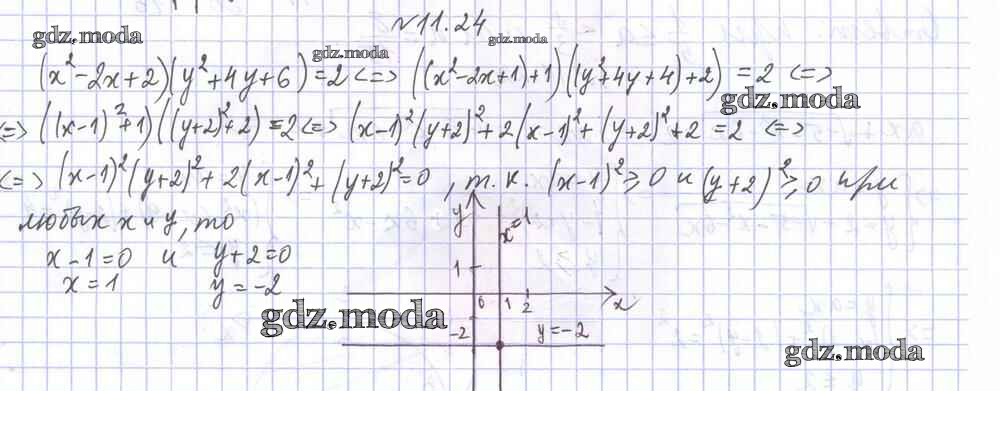 № 11.24
gdz.moda
gdz.moda
gdz.moda
(x²-2x+2)(y²+4y+6)=2 <=> ((x²-2x+1)+1)((y²+4y+4)+2) = 2 <=>
gdz.moda
<=> ((x-1)²+1)((y+2)²+2)=2 <=> (x-1)²(y+2)²+2(x-1)²+(y+2)²+2 = 2 <=>
<=> (x-1)²(y+2)²+2(x-1)²+(y+2)²=0, т.к. (x-1)²≥0 и (y+2)²≥0 при
любых x и y, то
x-1=0 и y+2=0
x=1 y=-2
y
x=1
1
0 1 2 x
-2 y=-2
gdz.moda
gdz.moda